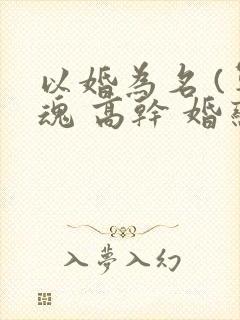 以婚為名(
魂 高幹 婚
入夢入幻